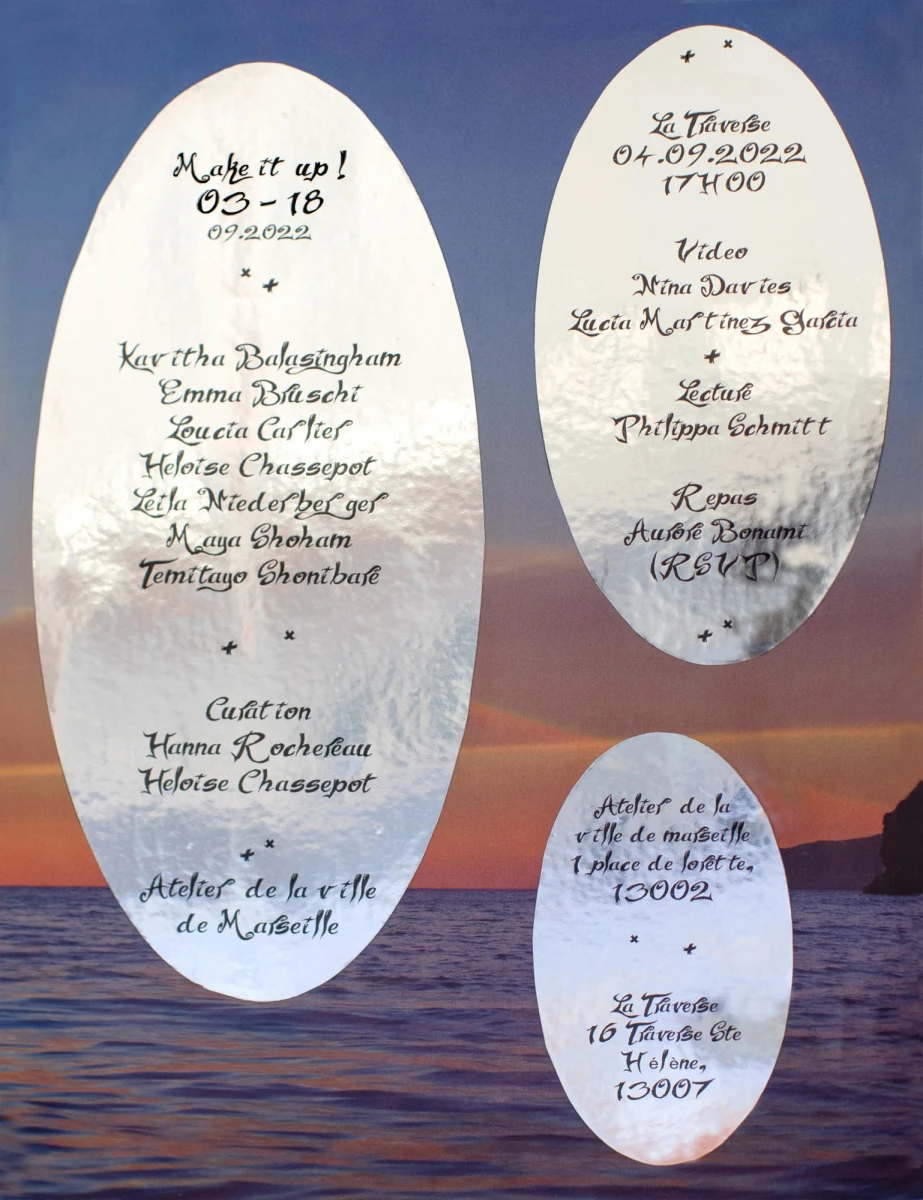 Make it up !
03 - 18
09.2022
Kavitha Balasingham
Emma Bruschi
Loucia Carlier
Heloise Chassepot
Leila Niederberger
Maya Shoham
Temitayo Shonibare
Curation
Hanna Rochereau
Heloise Chassepot
Atelier de la ville
de Marseille
La Traverse
04.09.2022
17H00
Video
Nina Davies
Lucia Martinez Garcia
Lecture
Philippa Schmitt
Repas
Aurore Bonami
(RSVP)
Atelier de la
ville de marseille
1 place de lorette,
13002
La Traverse
16 Traverse Ste
Hélène,
13007